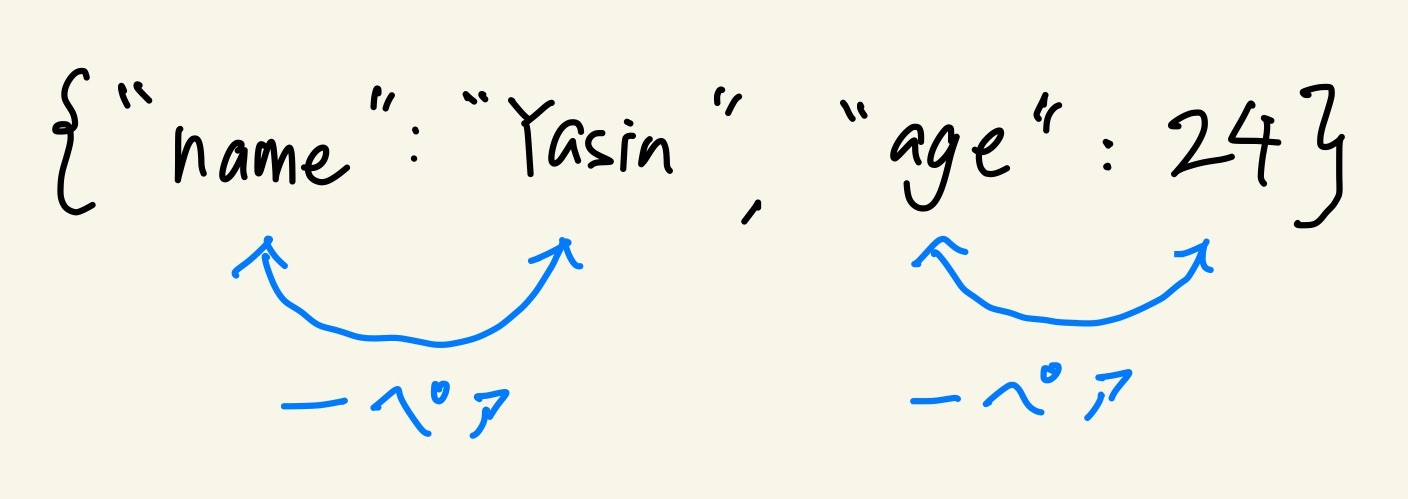 {“name”: “Yasin”, “age”: 24}
一ペア 一ペア